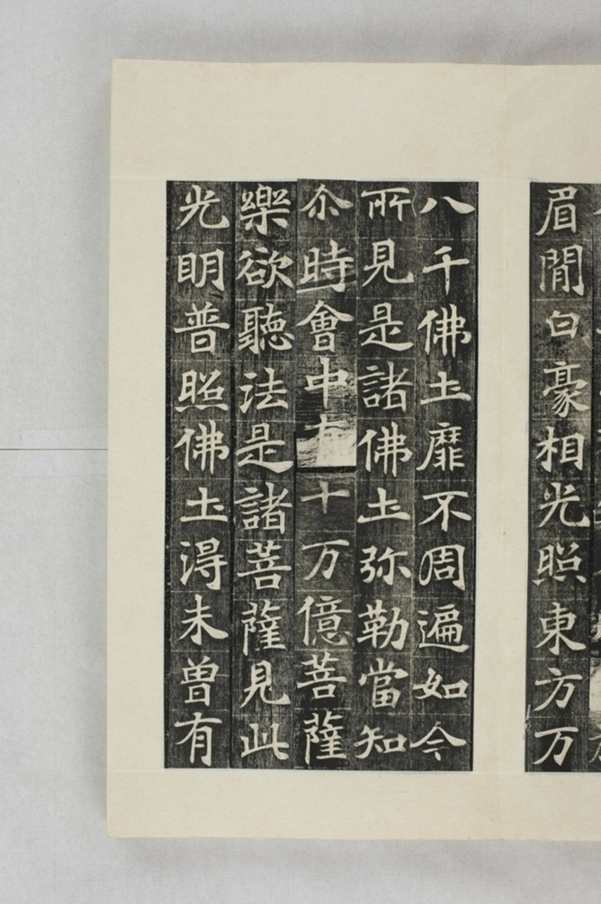 眉間白豪相光照東方万
八千佛土靡不周遍如今
所見是諸佛土弥勒當知
尒時會中 十万億菩薩
樂欲聽法是諸菩薩見此
光明普照佛土淂未曾有